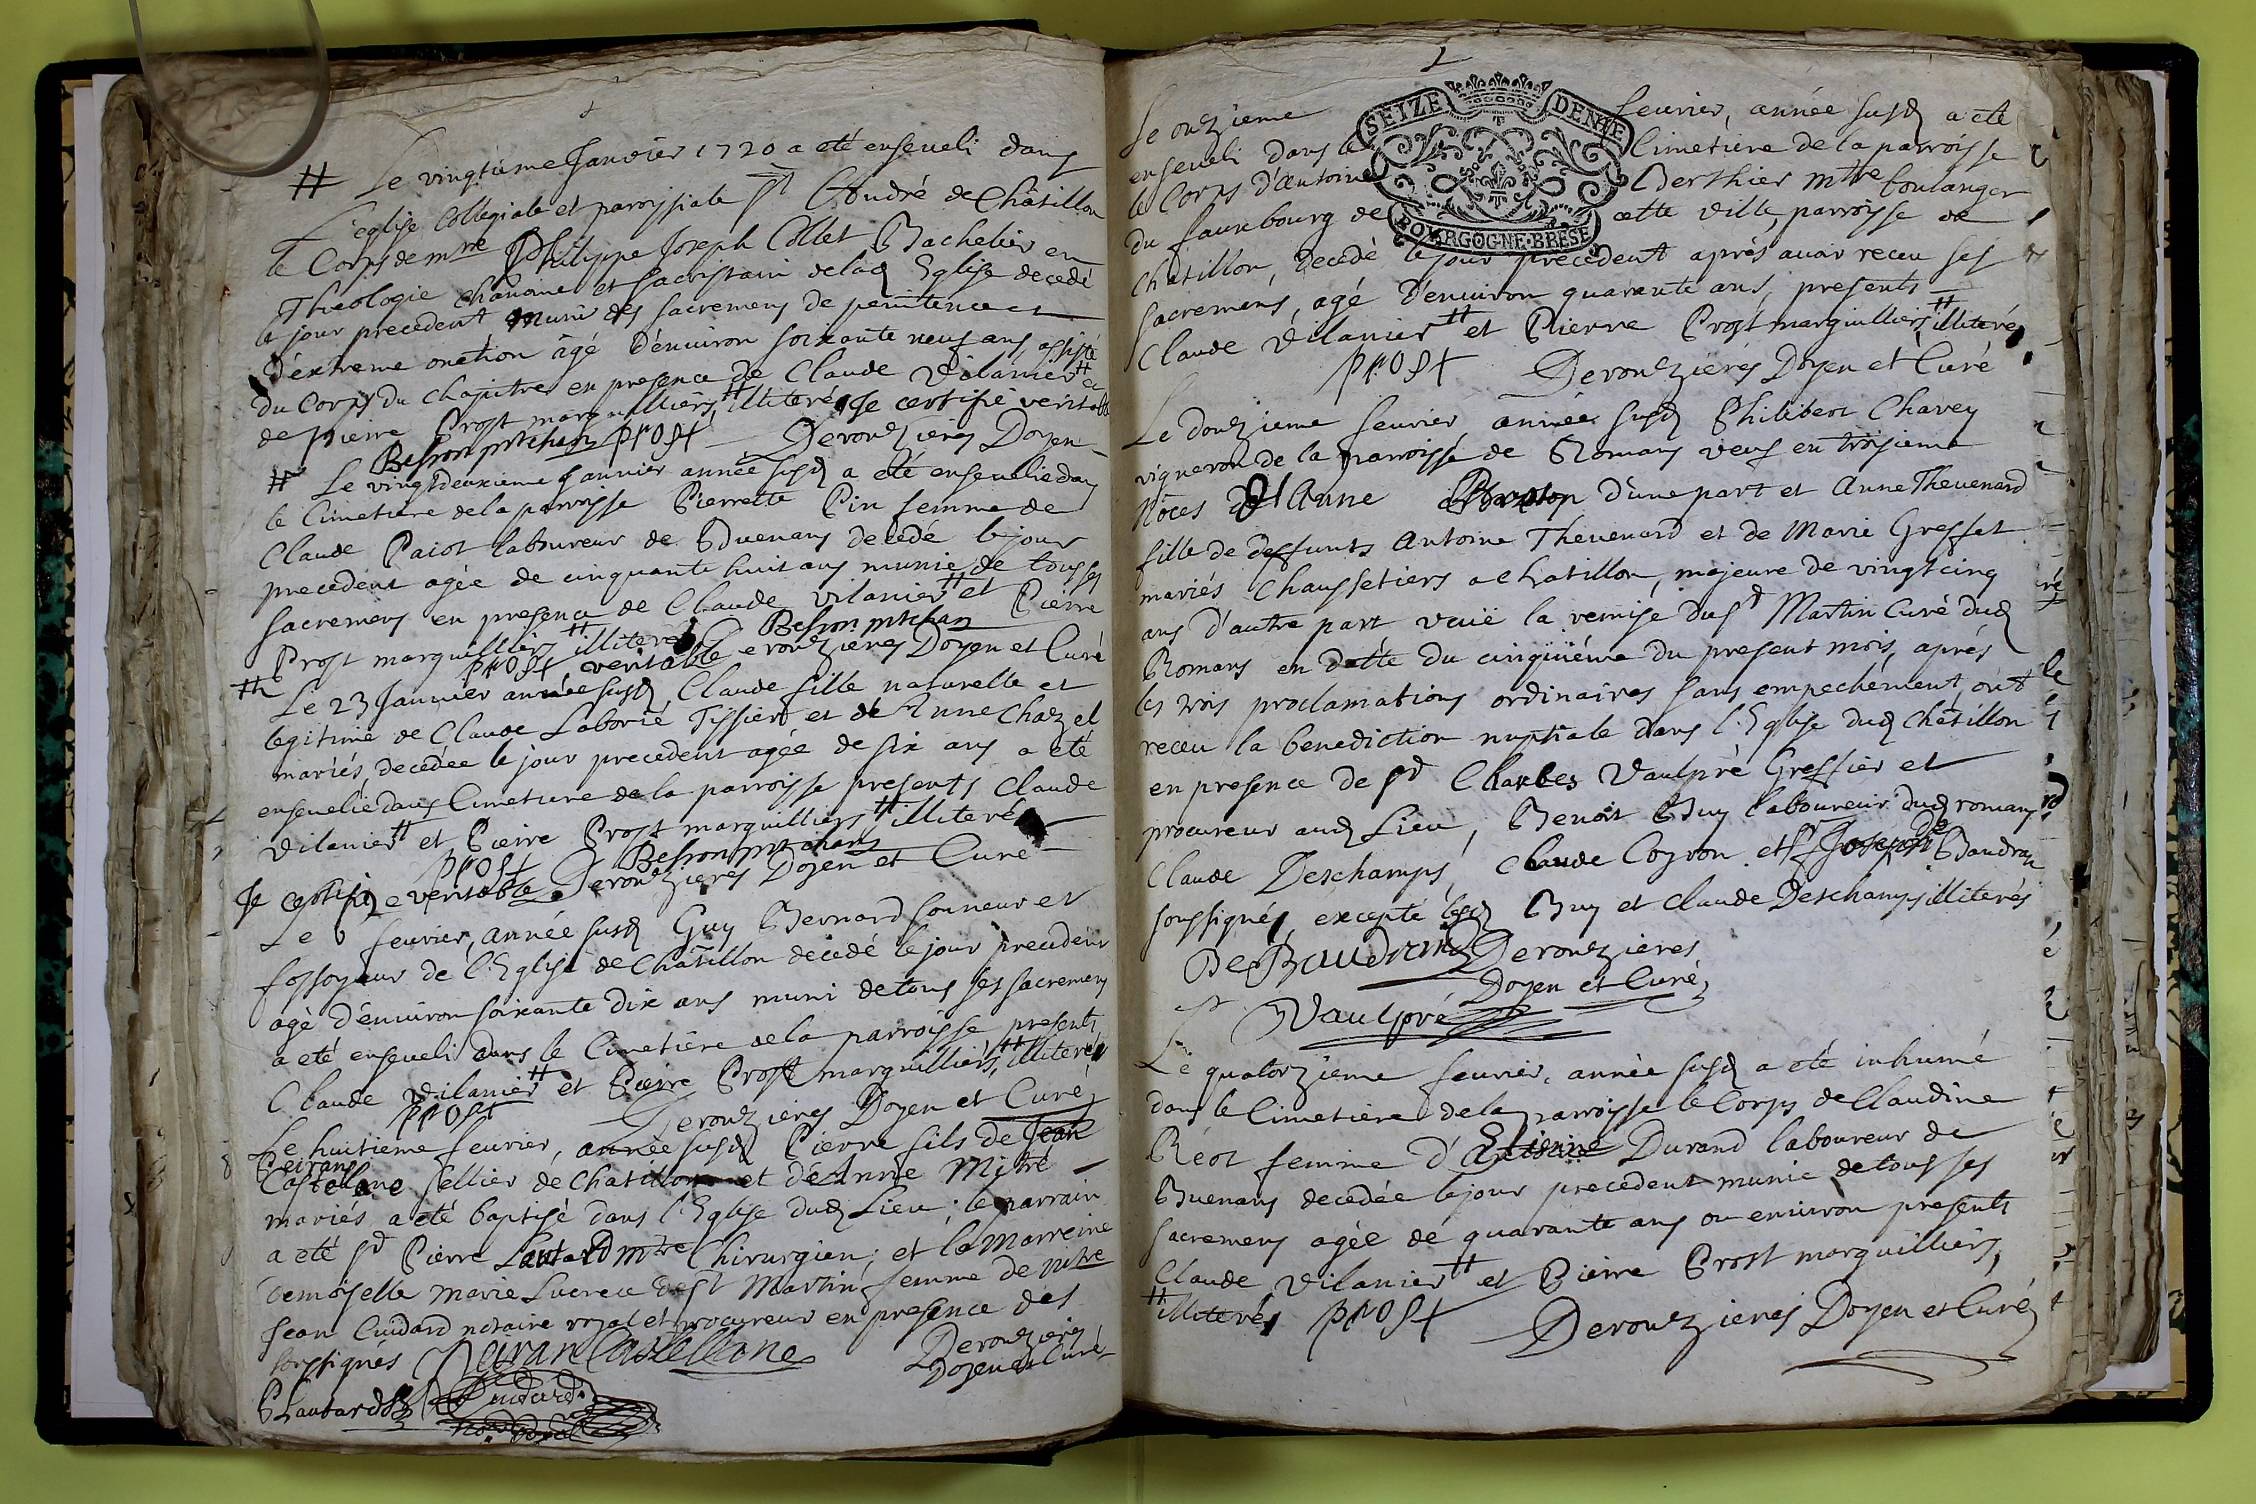 # Le vingtiéme Janvier 1720 a eté enseveli dans
L'église Collegiale et paroissiale St André de Châtillon
le Corps de mre Philippe Joseph Collet Bachelier en
Theologie chanoine et sacristain delad Eglise decedé
le jour precedent, muni des sacremens de penitence et
d'extreme onction âgé d'environ soixante neuf ans assisté
du Corps du chapitre, en presence de Claude Vilanier# et
de pierre Prost marguilliers, #illiterés Je certifie veritable
Besson prtchan prost Derouzieres Doyen
# Le vingtdeuxieme Janvier année susd a eté ensevelie dans
le Cimetiere de la parroisse Pierrette Pin femme de
Claude Paiot laboureur de Buenans decedé le jour
precedent agée de cinquante huit ans munie de tous ses
sacremens en presence de Claude Vilanier# et Pierre
Prost marguilliers #illiterés Besson prtchan
prost veritable Derouzieres Doyen et Curé
# Le 23 Janvier année susd Claude fille naturelle et
legitime de Claude Laborié Tissier et de Anne Chazel
mariés, decedée le jour precedent agée de six ans a eté
ensevelie dans Cimetiere de la parroisse presents Claude
Vilanier# et Pierre Prost marguilliers #illiterés
prost Besson prtchan
Je certifie veritable Derouzieres Doyen et Curé
Le 6 fevrier, année susd Guy Bernard sonneur et
fossoyeur de l'Eglise de Châtillon decedé le jour precedent
agé d'environ soixante dix ans muni de tous ses sacremens
a eté enseveli dans le Cimetiére de la parroisse presents
Claude Vilanier# et Pierre Prost marguilliers, #illiterés
prost Derouzieres Doyen et Curé
Le huitieme fevrier, année susd Pierre fils de Jean
Peiran
Castelane sellier de Chatillon et d'Anne Mitre
mariés a eté baptisé dans l'Eglise dud Lieu; le parrain
a eté sd Pierre Lautard mtre Chirurgien; et la Marreine
demoiselle Marie Lucrece de St Martin femme de mtre
Jean Cuidard notaire royal et procureur en presence des
soussignés Peiran Castellane Derouzieres
Doyen et Curé
PLautard Cuidard
no.re Royal
SEIZE DENIE
BOURGOGNE·BRESE
Le onzieme fevrier, année susd a eté
enseveli dans le Cimetiere de la parroisse
le Corps d'antoine Berthier mtre boulanger
du fauxbourg de cette ville, parroisse de
Chatillon, decedé le jour precedent aprés avoir receu ses
sacremens, agé d'environ quarante ans, presents
Claude Vilanier# et Pierre Prost marguilliers, #illiterés
prost Derouzieres Doyen et Curé
Le douzieme fevrier année susd Philibert Chavey
vigneron de la parroisse de Romans veuf en troisieme
Nôces d'Anne d'une part et Anne Thevenard
fille de deffunts Antoine Thevenard et de Marie Greffet
mariés Chaussetiers a chatillon, majeure de vingtcinq
ans d'autre part veuë la remise du sd Martin Curé dud
Romans en datte du cinquiéme du present mois, aprés
les trois proclamations ordinaires sans empechement, ont
receu la benediction nuptiale dans l'Eglise dud Châtillon
en presence de sd Charles Vaulpré Greffier et
procureur aud Lieu, Benoit Buy laboureur dud romans
Claude Deschamps, Claude Coyron et sr Joseph De Baudran
soussignés, excepté lesd Buy et Claude Deschamps illiterés
De Baudrand Derouzieres
Doyen et Curé
Vaulpré
Le quatorzieme fevrier, année susd a eté inhumé
dans le Cimetiere de la parroisse le Corps de Claudine
Réot femme d'Etienne Durand laboureur de
Buenans decedée le jour precedent munie de tous ses
sacremens agée de quarante ans ou environ presents
Claude Vilanier# et Pierre Prost marguilliers,
#illiterés prost Derouzieres Doyen et Curé